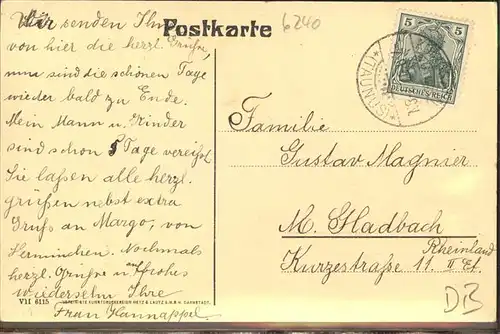 Postkarte
6240
Wir senden Ihnen
von hier die herzl. Grüße,
nun sind die schönen Tage
wieder bald zu Ende.
Mein Mann u. Kinder
sind schon 5 Tage verreist.
Sie laßen alle herzl.
grüßen nebst extra
Gruß an Margo, von
Herminchen. Nochmals
herzl. Grüße u auf frohes
Wiedersehn Ihre
Frau Hannappel
5
DEUTSCHES REICH
(TAUNUS)
Familie
Gustav Magnier
M. Gladbach
Rheinland
Kurzestraße 11. II Et.
DB
VII 6115